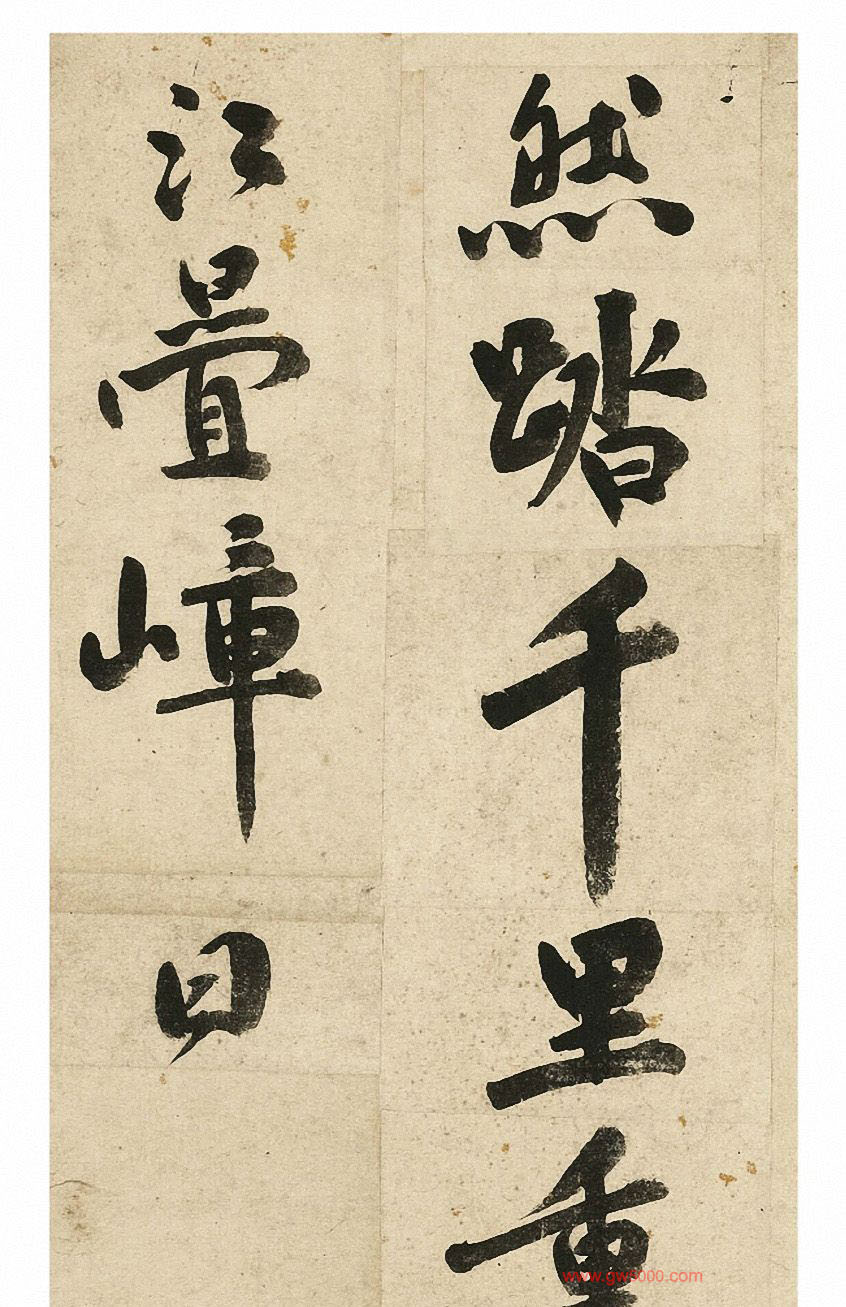 然踏千里重
江疊嶂日
www.gw9000.com